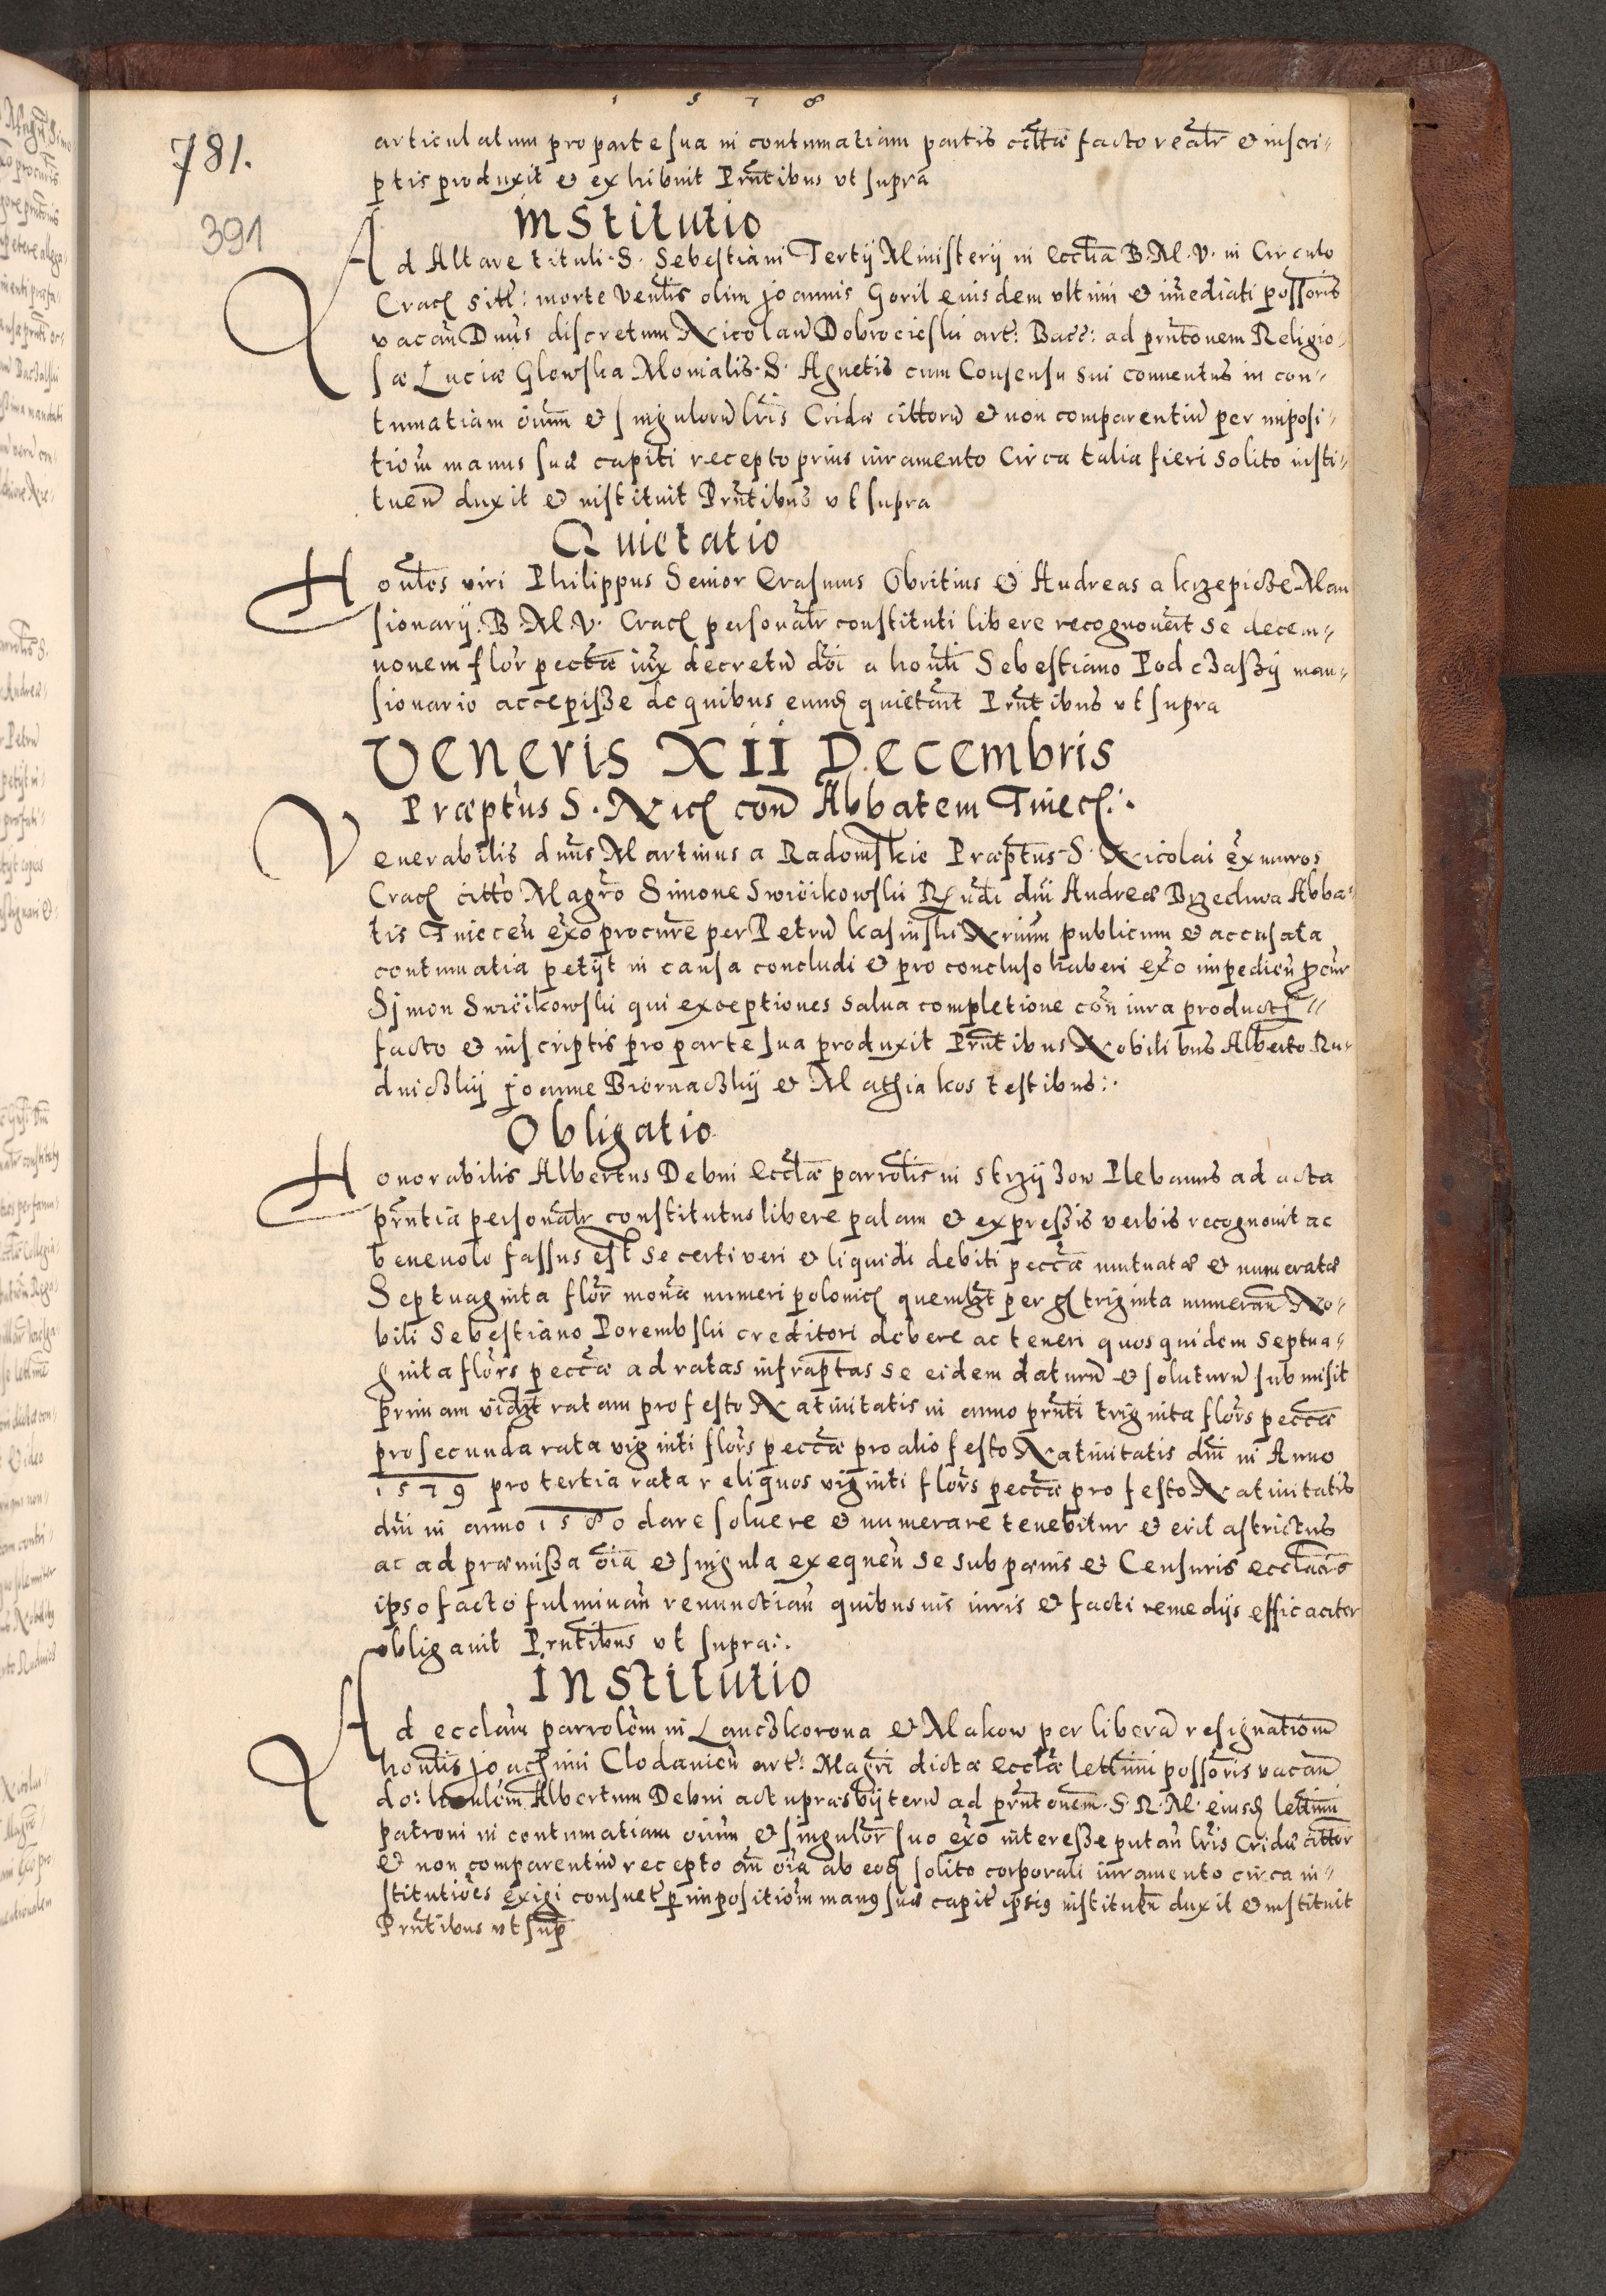 1578
781.
articulatum pro parte sua in contumatiam partis citatæ facto realr et in scri-
ptis produxit et exhibuit Prntibus vt supra
391
Institutio
Ad Altare tituli S. Sebestiani Tertij Ministerij in Ecclia B. M. V. in Circulo
Crac sitt: morte Ventis olim Joannis Goril eiusdem vltimi et imediati possoris
vacan Dnus discretum Nicolaum Dobrocieski art: Bacc: ad prntonem Religio-
sæ Luciæ Glowska Monialis S. Agnetis cum Consensu sui conuentus in con-
tumatiam oium et singulorum lris Cridæ cittorum et non comparentium per imposi-
tiom manus suæ capiti recepto prius iuramento Circa talia fieri solito insti-
tuen duxit et instituit Prntibus vt supra
Quietatio
Hontes viri Philippus Senior Erasmus Obritius et Andreas a krzepicze Man
sionarij B. M. V. Crac personalr constituti libere recognouert se decem-
nouem flor pectæ iux decretum doi a honli Sebestiano Podczaszij man-
sionario accepisse de quibus eund quietant Prntibus vt supra
Veneris XII Decembris
Præptus S. Nic con Abbatem Tinec:.
Venerabilis dnus Martinus a Radomskie Præptus S. Nicolai ex muros
Crac citto Magro Simone Swicikowski Rndi dni Andreæ Brzechwa Abba-
tis Tinecen exo procure per Petrum kasinski Nrium publicum et accusata
contumatia petijt in causa concludi et pro concluso haberi exo impedien pcur
Simon Swicikowski qui exceptiones salua completione con iura product
facto et in scriptis pro parte sua produxit Prntibus Nobilibus Alberto Ru-
dniczkij Joanne Biernaczkij et Mathia kos testibus:.
Obligatio
Honorabilis Albertus Debni Ecclæ parrolis in Strzijzow Plebanus ad acta
prntia personalr constitutus libere palam et expressis verbis recognouit ac
beneuolo fassus est se certi veri et liquidi debiti peccæ mutuatæ et numeratæ
Septuaginta flor monæ numeri polonic quemlzt per g triginta numeran No-
bili Sebestiano Porembski creditori debere ac teneri quos quidem septua-
ginta flors peccæ ad ratas infraptas se eidem daturum et soluturum submisit
primam vidzt ratam pro festo Natiuitatis in anno prnti triginta flors peccæ
pro secunda rata viginti flors peccæ pro alio festo Natiuitatis dni in Anno
1579 pro tertia rata reliquos viginti flors peccæ pro festo Natiuitatis
dni in anno 1580 dare soluere et numerare tenebitur et erit astrictus
ac ad præmissa oia et singula exequen se sub pœnis et Censuris ecclacis
ipso facto fulminan renunctian quibusuis iuris et facti remedijs efficaciter
obligauit Prntibus vt supra:.
Institutio
Ad ecclam parrolem in Lanczkorona et Makow per liberam resignatiom
hontis Joachimi Clodanien art: Magri dictæ Ecclæ lettimi possoris vacan
do: Albertum Debni actu præsbijterum ad prntonem S. R. M. eiusd lettimi
patroni in contumatiam oium et singulor suo exo interesse putan lris Cridæ cittor
et non comparentium recepto an oia ab eod solito corporali iuramento circa in-
stitutiões exigi consuet per impositiom manus suæ capit ipsius instituen duxit et instituit
Prntibus vt sup